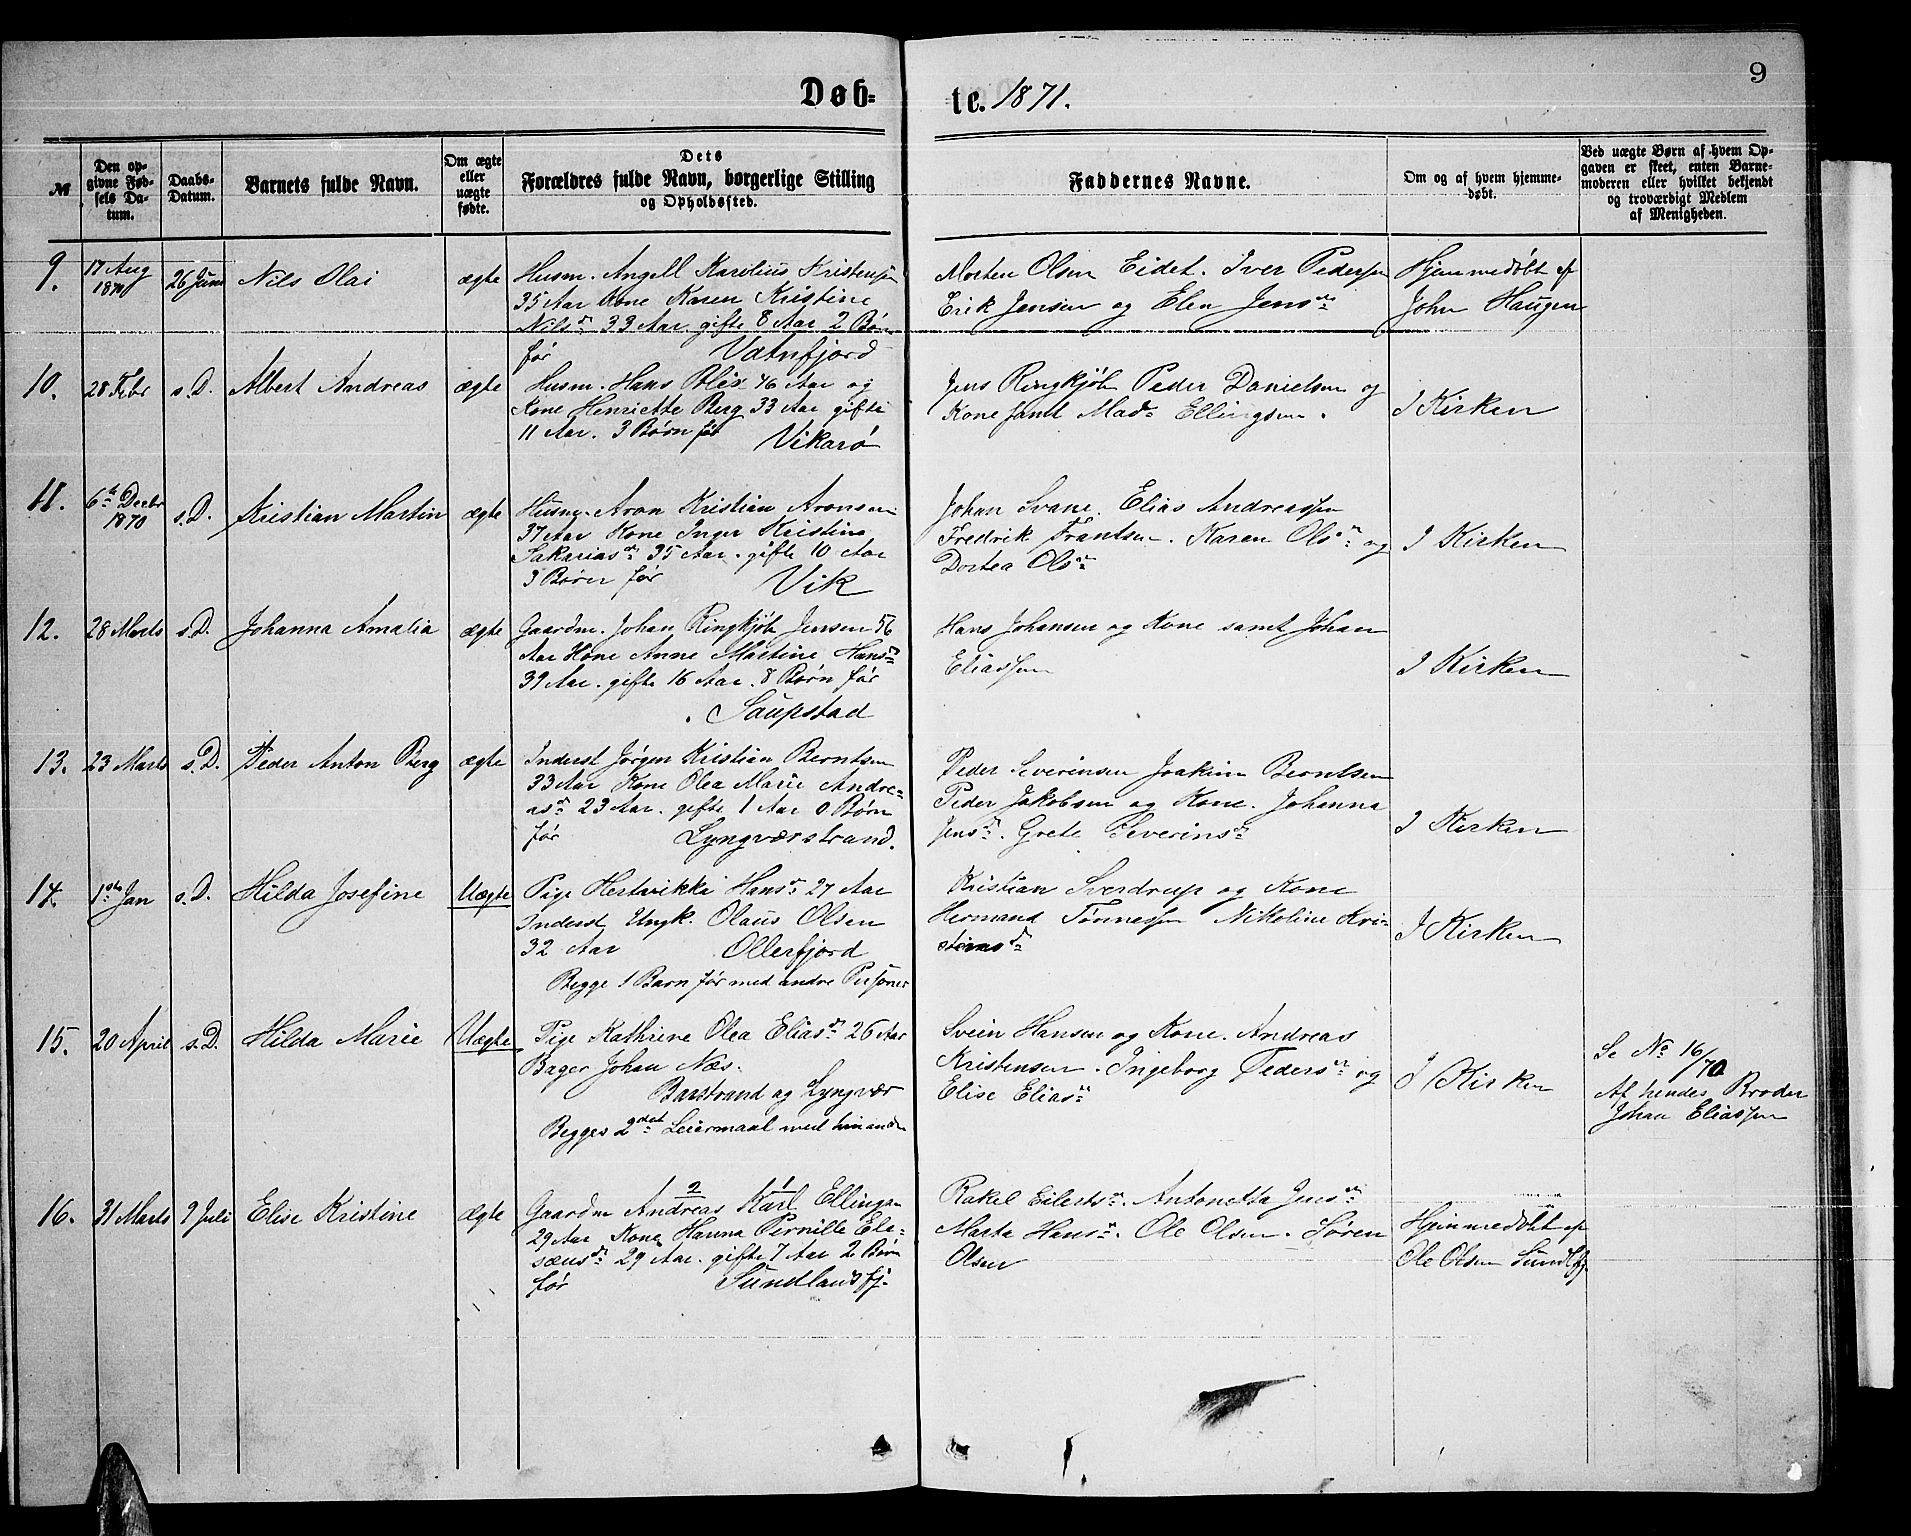 Døb- te. 1871.
9
№
Den op-
givne Fød-
sels Da-
tum.
Daabs-
Datum.
Barnets fulde Navn.
Om ægte
eller
uægte
fødte.
Dets
Forældres fulde Navn, borgerlige Stilling
og Opholdssted.
Faddernes Navne.
Om og af hvem hjemme-
døbt.
Ved uægte Børn af hvem Op-
gaven er skeet, enten Barne-
moderen eller hvilket bekjendt
og troværdigt Medlem
af Menigheden.
9.
17 Aug
1870
26 Juni
Nils Olai
ægte
Husm. Angell Karelius Kristensen
35 Aar Kone Karen Kristine
Nilsdr 33 Aar. gifte 8 Aar 2 Børn
før Vatnfjord
Morten Olsen Eidet. Iver Pedersen
Erik Jensen og Elen Jensdr
Hjemmedøbt af
John Haugen
10.
28 Febr
s. D.
Albert Andreas
ægte
Husm. Hans Blix 46 Aar og
Kone Henriette Berg 33 Aar gifte
11 Aar. 3 Børn før Vikarø
Jens Ringkjøb Peder Danielsen og
Kone samt Mad. Ellingsen.
I Kirken
11.
6te Decbr
1870
s. D.
Kristian Martin
ægte
Husm. Aron Kristian Aronsen
37 Aar Kone Inger Kristine
Sakariasdr 35 Aar. gifte 10 Aar
3 Børn før Vik
Johan Svane. Elias Andreassen
Fredrik Frantsen. Karen Olsdr og
Dortea Olsdr
I Kirken
12.
28 Marts
s. D.
Johanna Amalia
ægte
Gaardm. Johan Ringkjøb Jensen 56
Aar Kone Anne Martine Hansdr
39 Aar. gifte 16 Aar. 8 Børn før
Saupstad
Hans Johansen og Kone samt Johan
Eliassen
I Kirken
13.
23 Marts
s. D.
Peder Anton Berg
ægte
Inderst Jørgen Kristian Berntsen
33 Aar Kone Olea Marie Andre-
asdr 23 Aar. gifte 1 Aar 0 Børn
før Lyngværstrand.
Peder Severinsen Joakim Berntsen
Peder Jakobsen og Kone. Johanna
Jensdr. Grete Severinsdr
I Kirken
14.
1ste Jan
s. D.
Hilda Josefine
Uægte
Pige Hertvikke Hansdr 27 Aar
Inderst Ungk. Olaus Olsen
32 Aar Ollerfjord
Begge 1 Barn før med andre Personer
Kristian Sverdrup og Kone
Hermand Tønnessen Nikoline Kri-
stensdr
I Kirken
15.
20 April
s. D.
Hilda Marie
Uægte
Pige Kathrine Olea Eliasdr 26 Aar
Bager Johan Næs.
Barstrand og Lyngvær
Begges 2det Leiermaal med hinanden
Svein Hansen og Kone. Andreas
Kristensen. Ingeborg Pedersdr og
Elise Eliasdr
I Kirken
Se No 16/70
Af hendes Broder
Johan Eliassen
16.
31 Marts
9 Juli
Elise Kristine
ægte
2 1
Gaardm Andreas Karl Ellingsen
29 Aar Kone Hanna Pernille Eli-
sæusdr 29 Aar. gifte 7 Aar 2 Børn
før Sundlandsfj.
Rakel Eilertsdr. Antonetta Jensdr
Marta Hansdr. Ole Olsen. Søren
Olsen
Hjemmedøbt af
Ole Olsen Sundlfj.